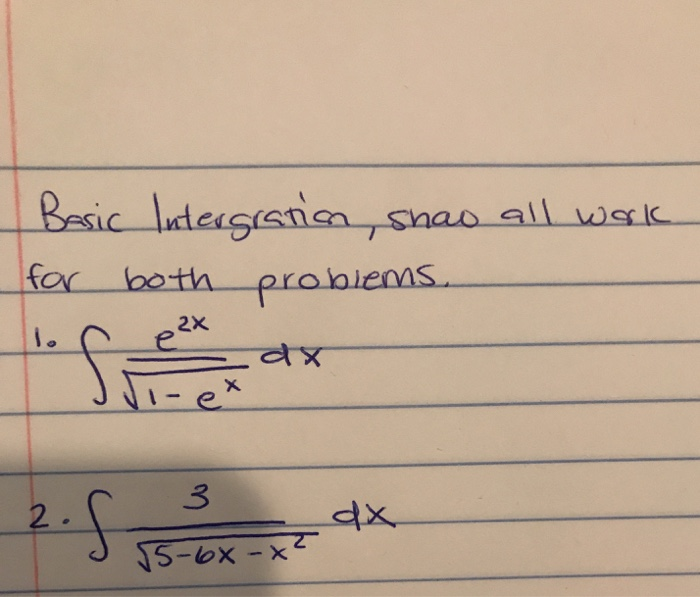 Basic Intergration, show all work
for both problems.
1. ∫ e^{2x} / √(1 - e^x) dx
2. ∫ 3 / √(5-6x-x^2) dx